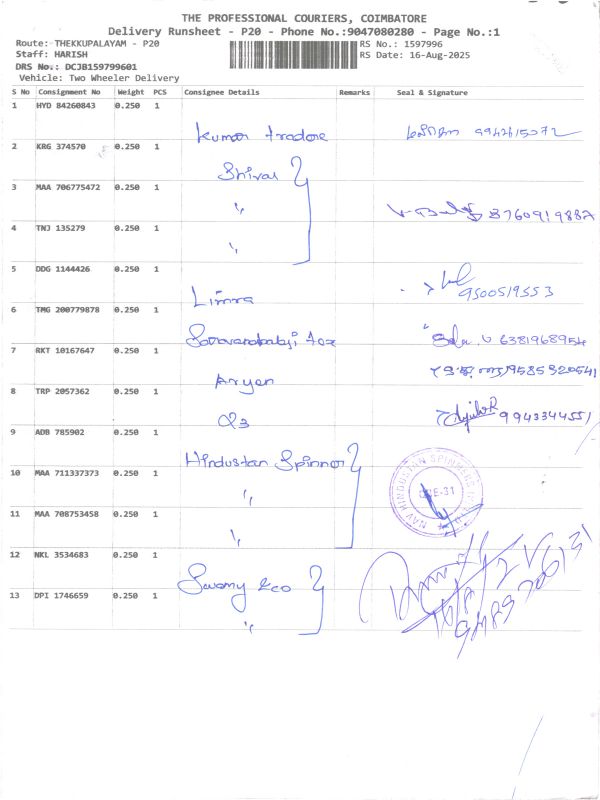 THE PROFESSIONAL COURIERS, COIMBATORE
Delivery Runsheet - P20 - Phone No.:9047080280 - Page No.:1
Route: THEKKUPALAYAM - P20 RS No.: 1597996
Staff: HARISH RS Date: 16-Aug-2025
DRS No.: DCJB159799601
Vehicle: Two Wheeler Delivery
S No Consignment No Weight PCS Consignee Details Remarks Seal & Signature
1 HYD 84260843 0.250 1
Kumar tradore 9942615072
2 KRG 374570 0.250 1
Shivas
3 MAA 706775472 0.250 1
" 8760919882
4 TNJ 135279 0.250 1
"
5 DDG 1144426 0.250 1
Limra 9500519553
6 TMG 200779878 0.250 1
6381968954
7 RKT 10167647 0.250 1
Aryen 9585920541
8 TRP 2057362 0.250 1
9943344551
9 ADB 785902 0.250 1
Hindustan Spinnor
10 MAA 711337373 0.250 1
"
NAV HINDUSTAN SPINNERS
CBE-31
11 MAA 708753458 0.250 1
"
12 NKL 3534683 0.250 1
Swamy &co
13 DPI 1746659 0.250 1
"